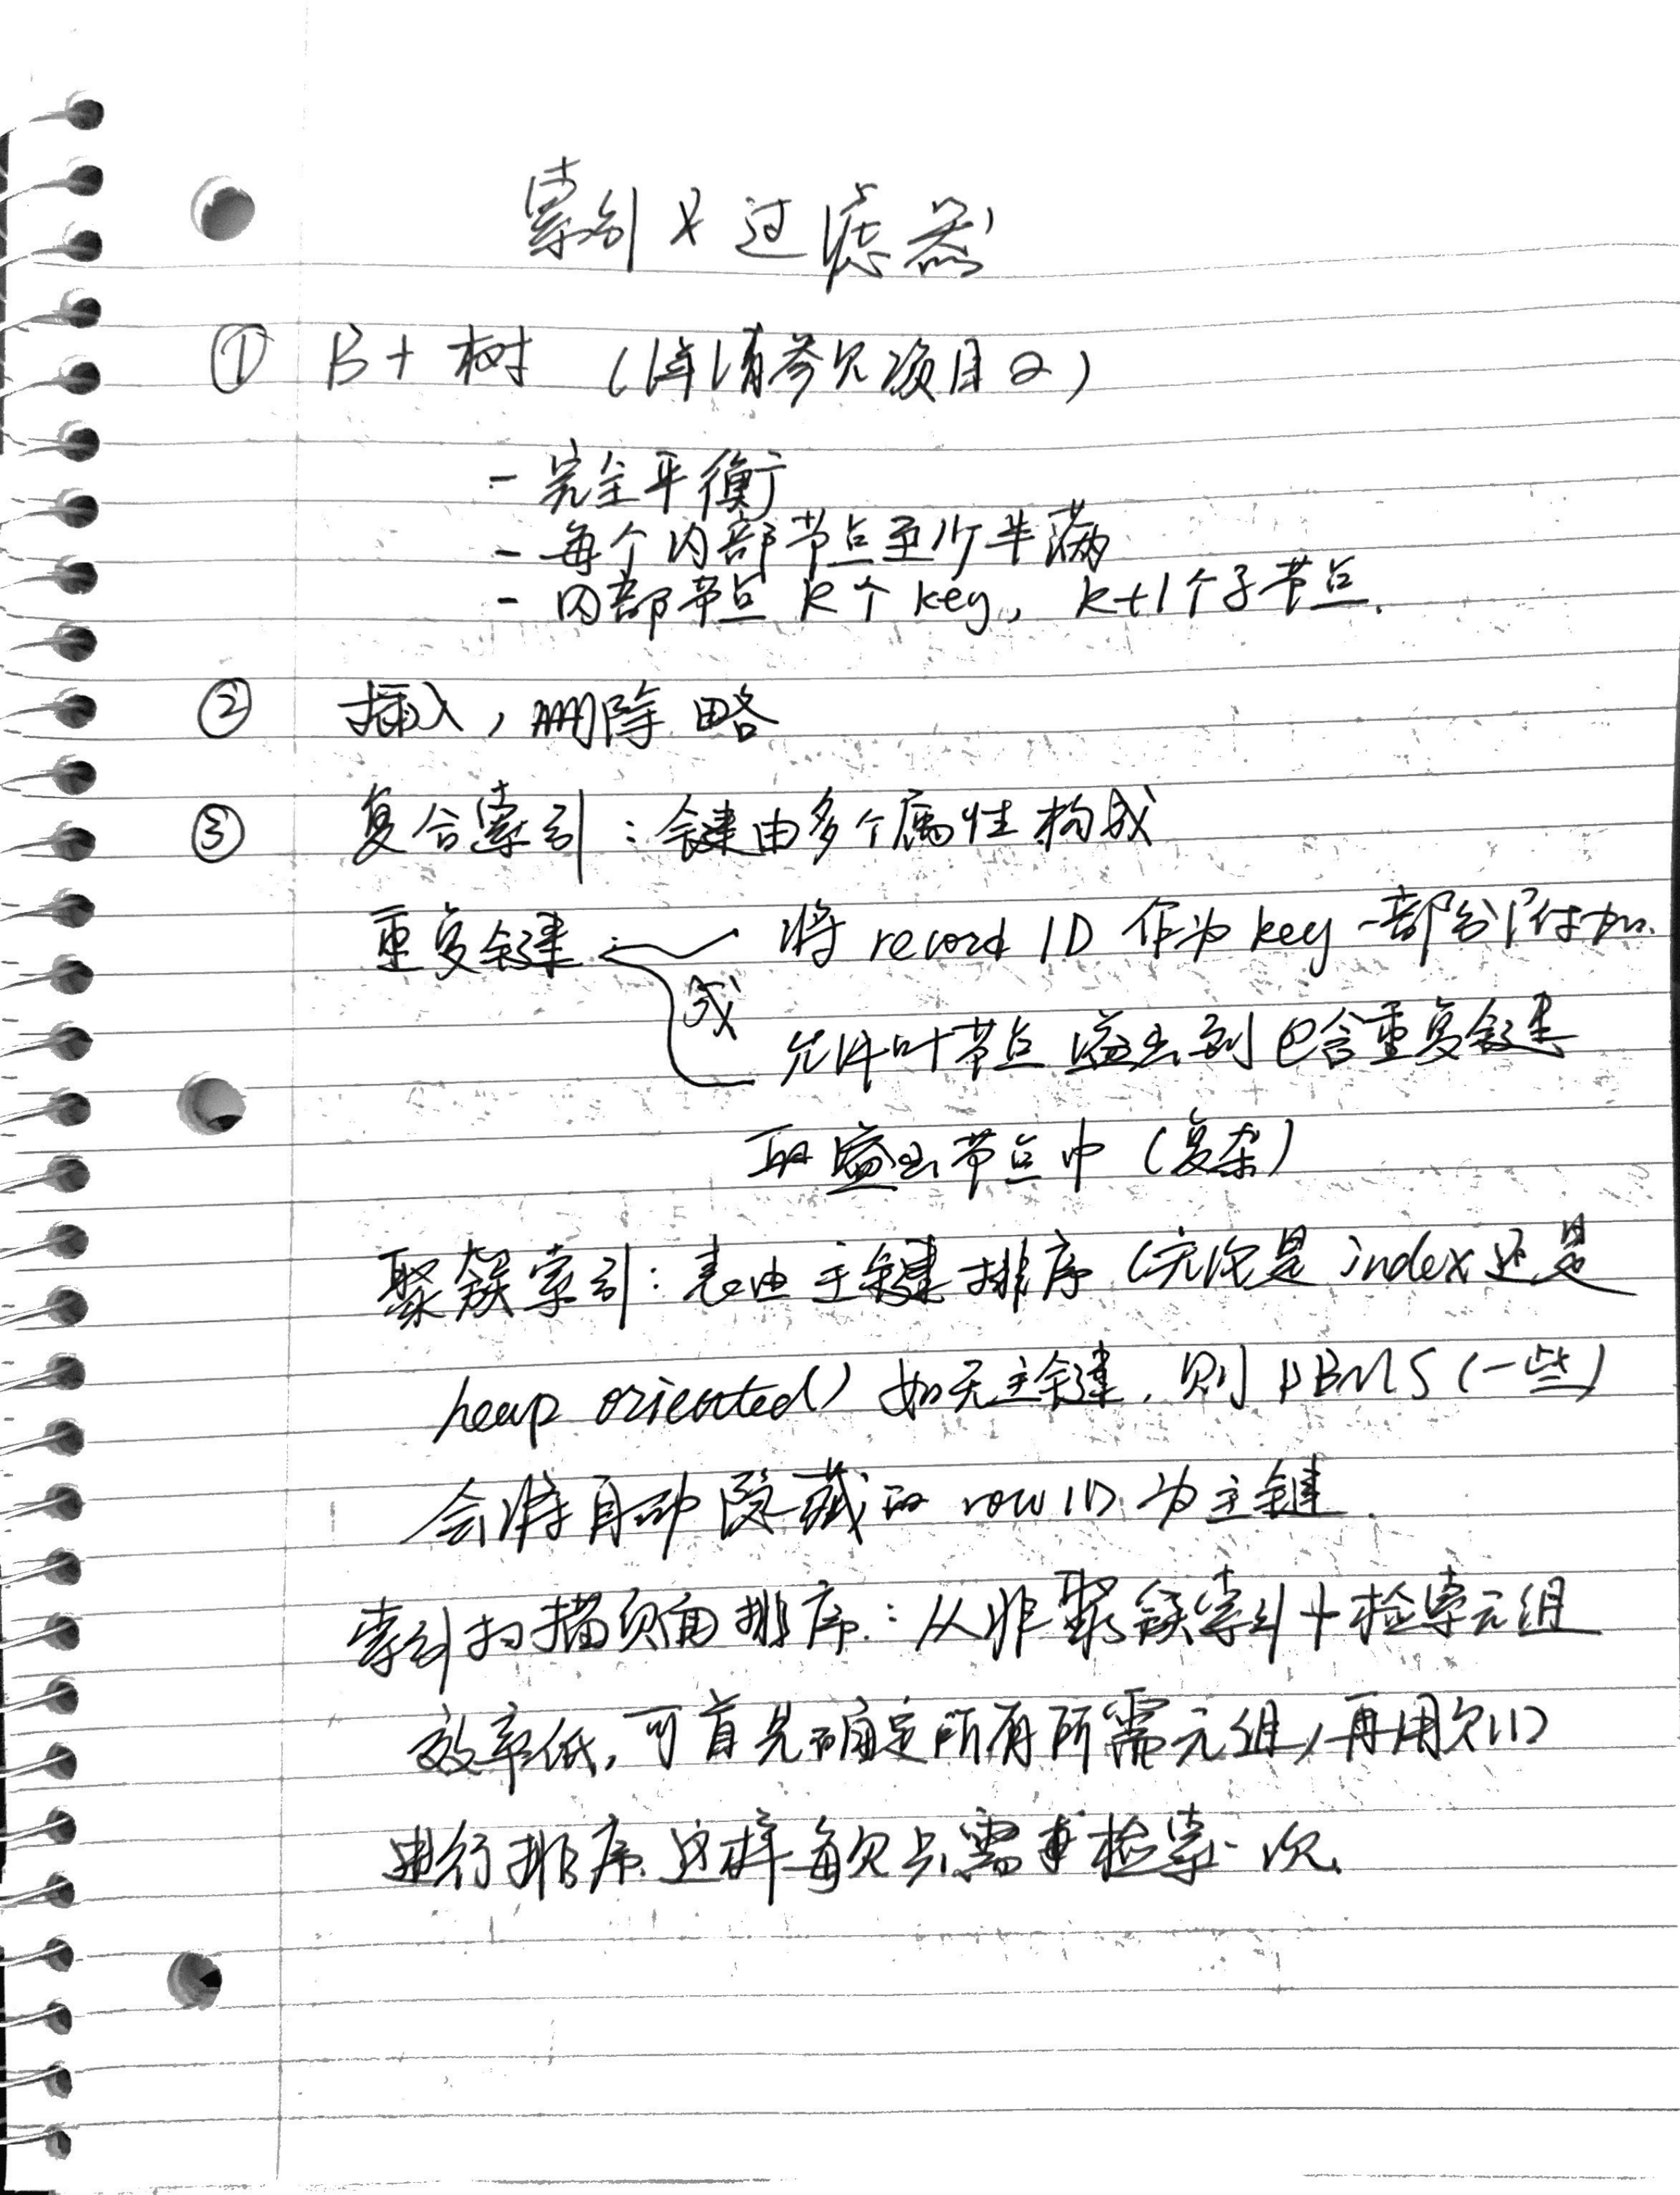 索引 & 过滤器
① B+ 树 (详情参见项目2)
- 完全平衡
- 每个内部节点至少半满
- 内部节点 k个 key, k+1个子节点.
② 插入, 删除 略
③ 复合索引: 键由多个属性构成
重复键: 将 record ID 作为 key 一部分附加.
或
允许叶节点溢出到包含重复键
的溢出节点中 (复杂)
聚簇索引: 表由主键排序 (无论是 index 还是
heap oriented) 如无主键, 则 DBMS (一些)
会将自动隐藏的 row ID 为主键.
索引扫描页面排序: 从非聚簇索引中检索元组
效率低, 可首先确定所有所需元组, 再用页ID
进行排序. 这样每页只需要检索一次.